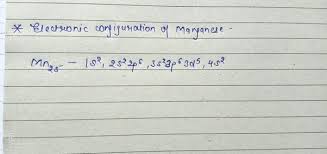 * Electronic configuration of Manganese -
Mn₂₅ - 1s², 2s² 2p⁶, 3s² 3p⁶ 3d⁵, 4s²